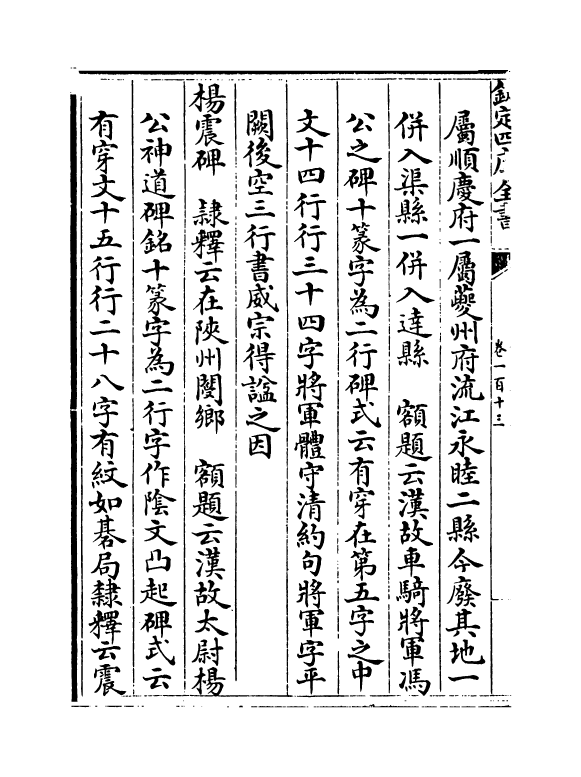 欽定四庫全書
卷一百十三
屬順慶府一屬夔州府流江永睦二縣今廢其地一
併入渠縣一併入達縣　額題云漢故車騎將軍馮
公之碑十篆字為二行碑式云有穿在第五字之中
文十四行行三十四字將軍體守清約句將軍字平
闕後空三行書威宗得諡之因
楊震碑　隸釋云在陜州閿鄉　額題云漢故太尉楊
公神道碑銘十篆字為二行字作陰文凸起碑式云
有穿文十五行行二十八字有紋如碁局隸釋云震